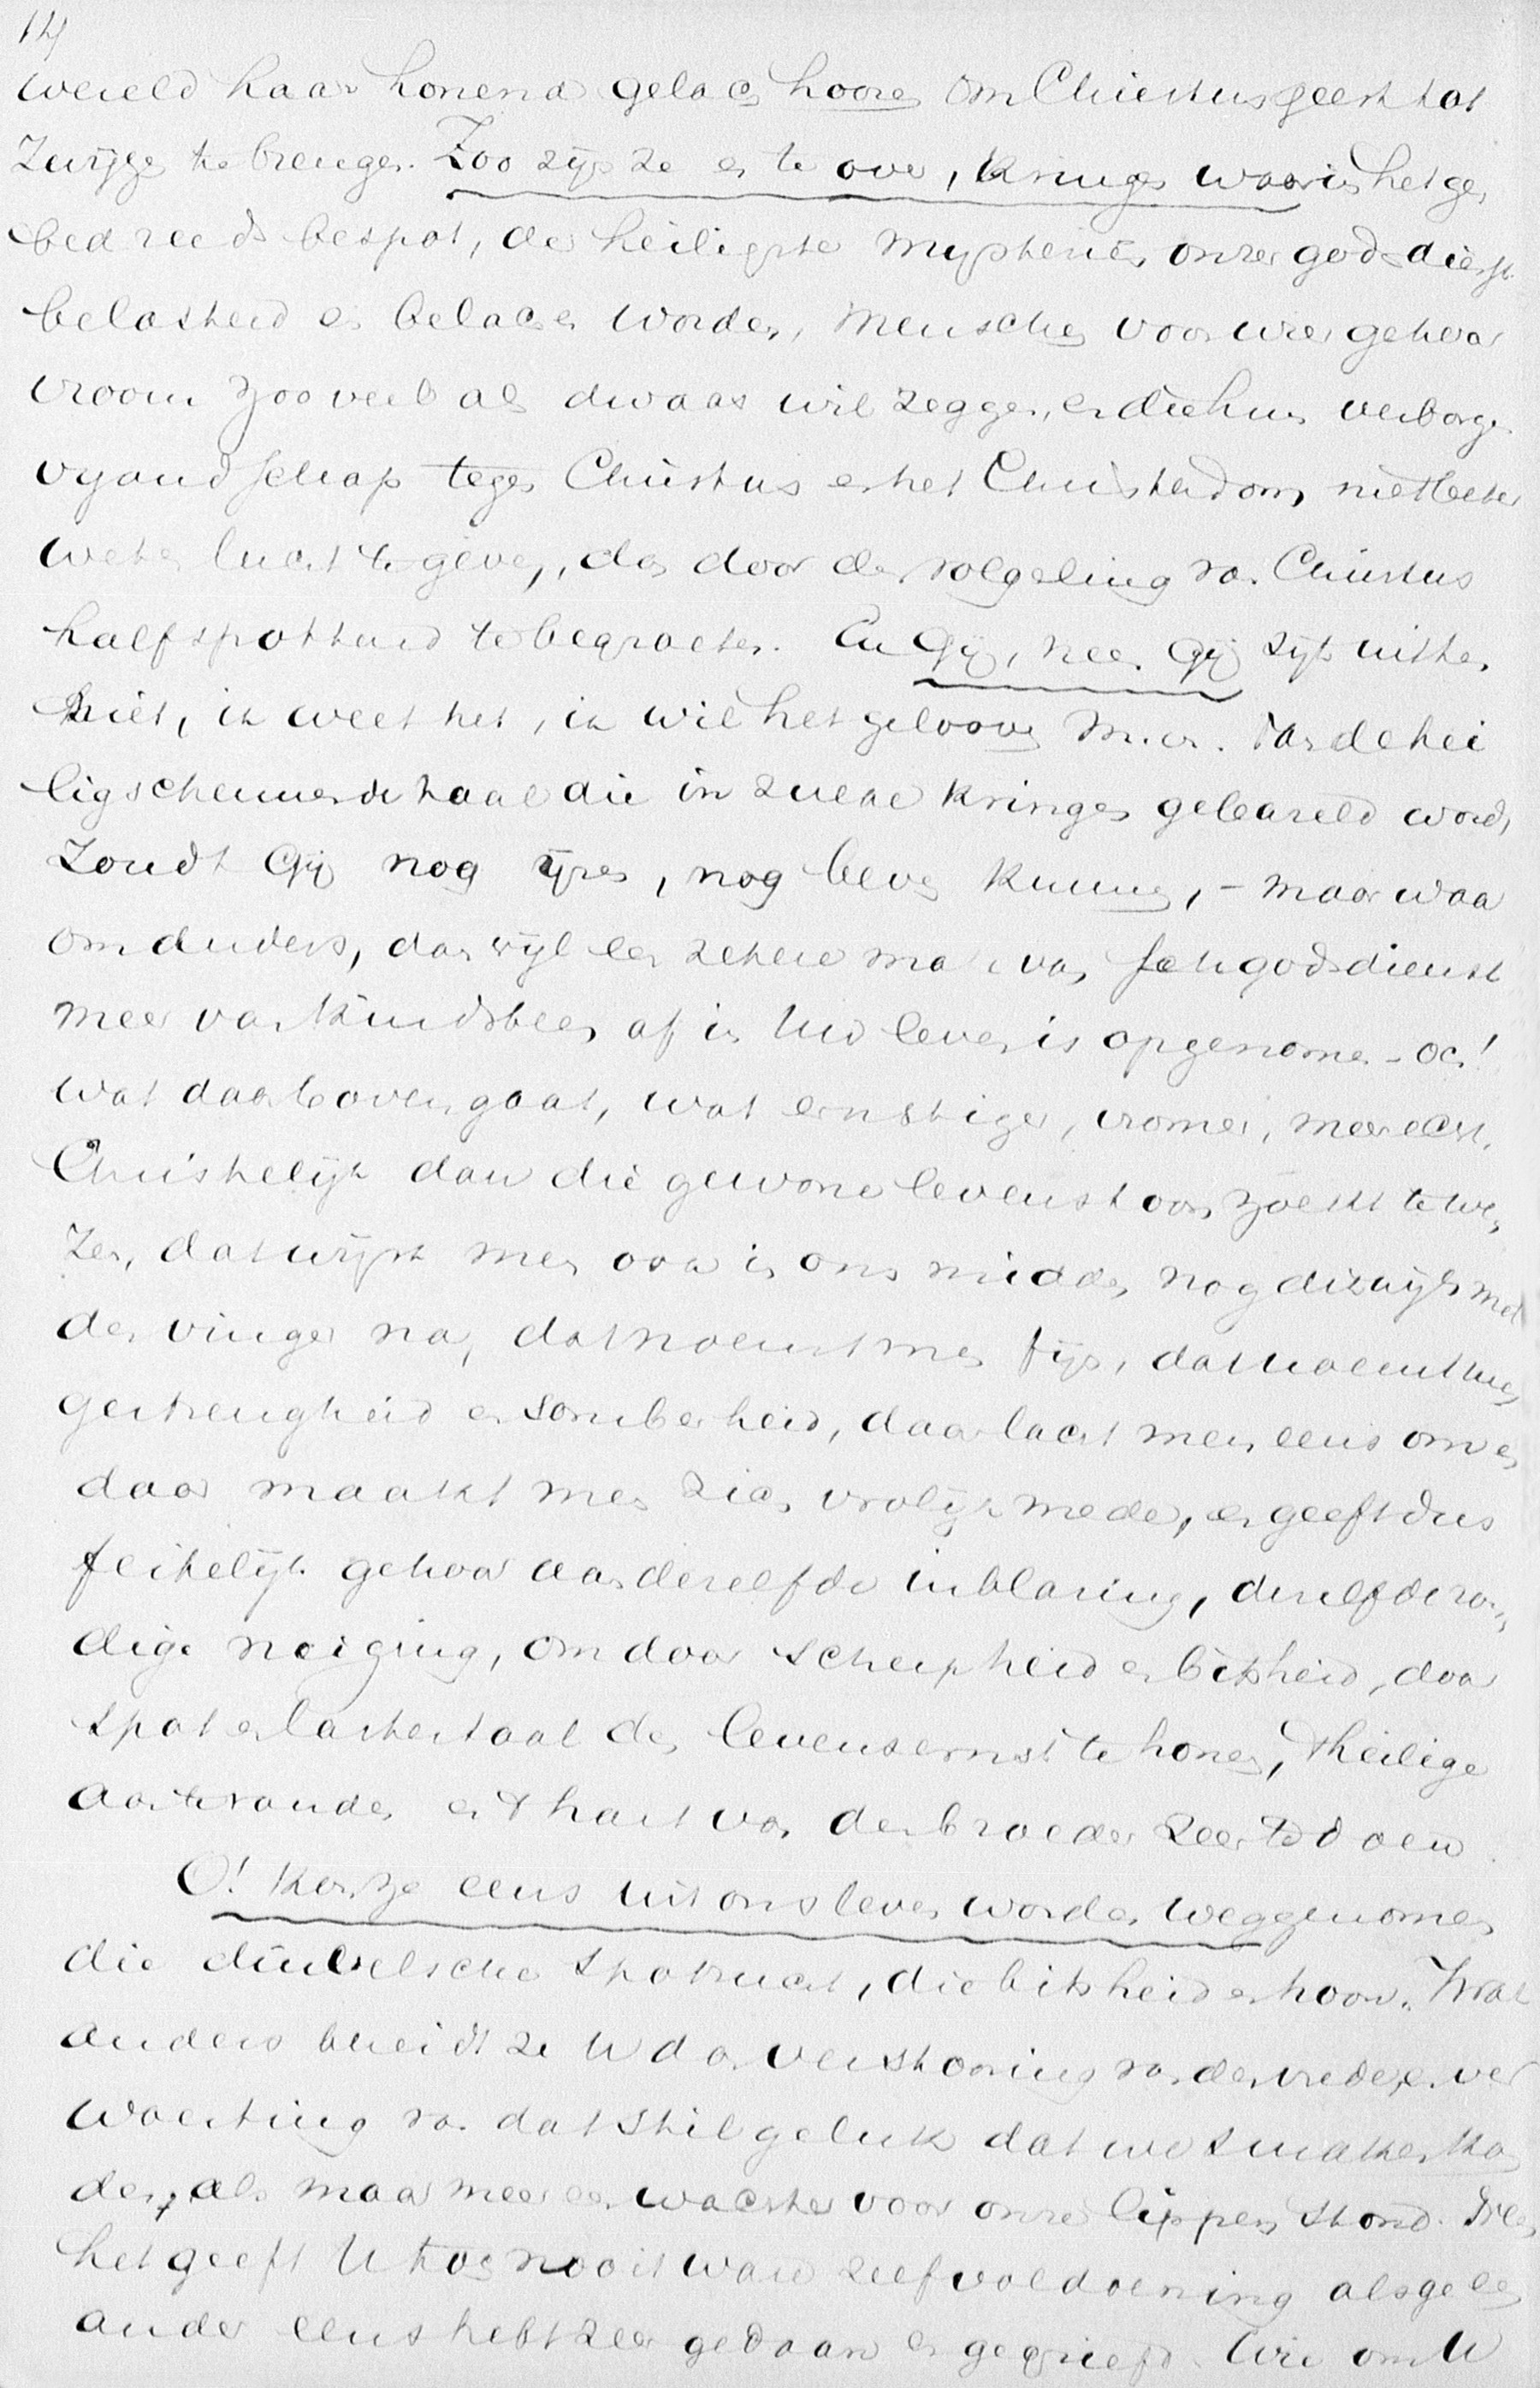 14
wereld haar honend gelach hooren om Christus geest tot
zwijgen te brengen. Zoo zijn ze er te over, kringen waarin het ge,
bed reeds bespot, de heiligste mysteriën onzer godsdienst
belasterd en belachen worden, menschen voor wier gehoor
vroom zooveel als dwaas wil zeggen, en die hun verborgen
vyandschap tegen Christus en het Christendom niet beter
weten lucht te geven, dan door den volgeling van Christus
half spottend te begroeten. En Gij, neen Gij zijt uit hen
niet, ik weet het, ik wil het gelooven M. en. Van de hei
ligschennende taal die in zulke kringen gebezeld wordt
Zoudt Gij nog ijzen, nog beven kunnen, - maar waa
om anders, dan wijl een zekere mate van godsdienst
meer van kindsbeen af in Uw leven is opgenomen - och!
wat daarboven gaat, wat ernstiger, vromer, meer echt
Christelijk dan die gewone levenstoon zoekt te we,
zen, dat wijst men ook in ons midden nog dikwijls met
den vinger na, dat noemt men fijn, dat noemt men
gestrengheid en somberheid, daar lacht men eens om en
daar maakt men zich vrolijk mede, en geeft dus
feitelijk gehoor aan dezelfde inblazing, dezelfde zon,
dige neiging, om door scherpheid en bitsheid, door
spot en lastertaal den levensernst te honen, 't heilige
aan te randen en 't hart van den broeder zeer te doen.
O! Kon ze eens uit ons leven worden weggenomen
die duivelsche spotzucht, die bitsheid en hoon. Wat
anders bereidt ze U dan verstooring van den vrede, en ver
woesting van dat stil geluk dat we smaken kon
den, als maar meer een wachter voor onze lippen stond. Neen
het geeft U toch nooit ware zelfvoldoening als ge een
ander eens hebt zeer gedaan en gegriefd. Wie om U